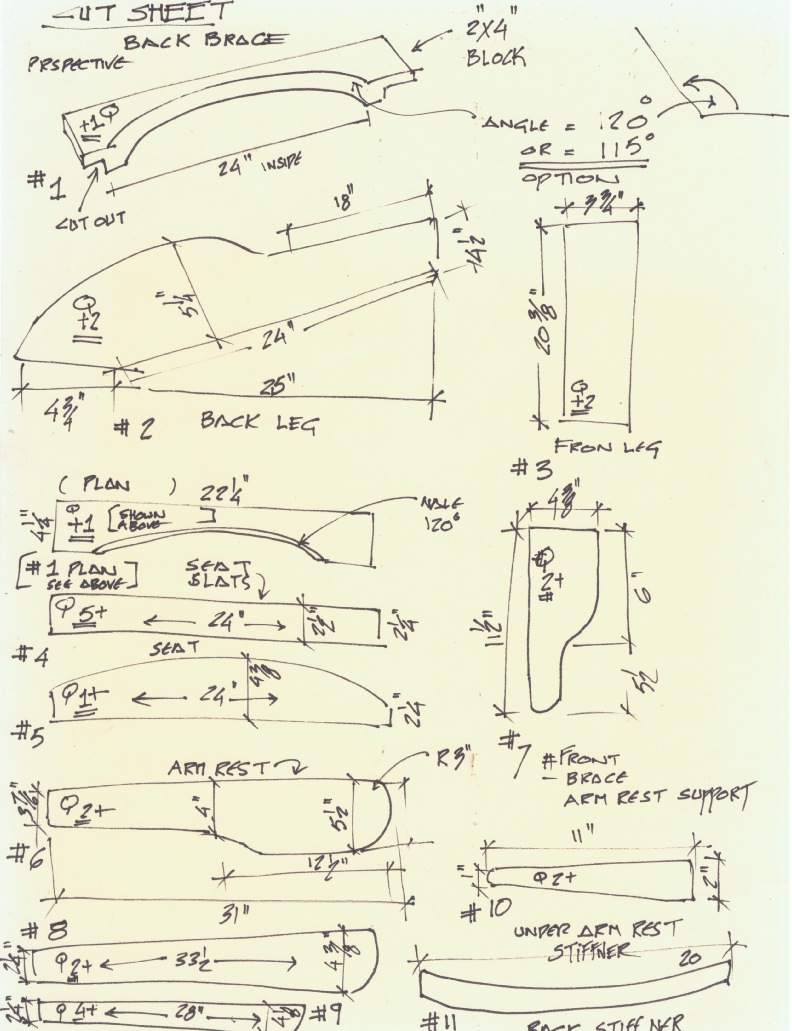 CUT SHEET
BACK BRACE
PRSPECTIVE
2"X4"
BLOCK
Q
+1
#1
CUT OUT
24" INSIDE
ANGLE = 120°
OR = 115°
OPTION
18"
4 1/2"
5 1/4"
Q
+2
24"
25"
4 3/4"
#2
BACK LEG
3 3/4"
20 3/8"
Q
+2
FRON LEG
#3
(PLAN)
22 1/4"
4 1/4"
Q
+1
[SHOWN
ABOVE]
120°
[#1 PLAN
SEE ABOVE]
SEAT
SLATS
Q 5+
24"
2 1/2"
2 1/4"
#4
SEAT
Q 1+
24"
4 3/8
2 1/4"
#5
4 3/8"
Q
2+
11 1/2"
6"
5 1/2
#7
#FRONT
- BRACE
ARM REST SUPPORT
ARM REST
R3"
Q 2+
4"
5 1/2"
12 1/2"
#6
31"
11"
1"
Q 2+
2"
#10
UNDER ARM REST
STIFFNER
#8
Q 2+
33 1/2
4 3/8"
Q 4+
28"
#9
20
#11
BACK STIFFNER